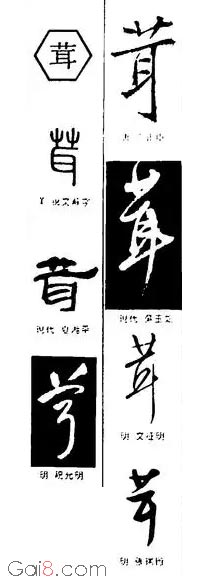 茸
茸
说文解字
茸
现代
茸
明 祝允明
茸
唐
茸
现代
茸
明 文征明
茸
明 张瑞图
Gai8.com